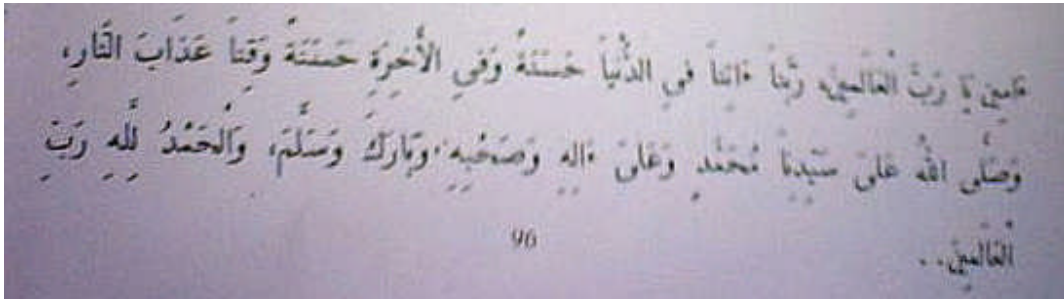 ءامِين يَا رَبَّ الْعَالَمِينَ، رَبَّنَا ءاتِنَا فِي الدُّنْيَا حَسَنَةً وَفِي الْأَخِرَةِ حَسَنَةً وَقِنَا عَذَابَ النَّارِ،
وَصَلَّى اللَّهُ عَلَى سَيِّدِنَا مُحَمَّدٍ وَعَلَى ءالِهِ وَصَحْبِهِ، وَبَارَكَ وَسَلَّمَ، وَالْحَمْدُ لِلَّهِ رَبِّ
الْعَالَمِينَ..
96